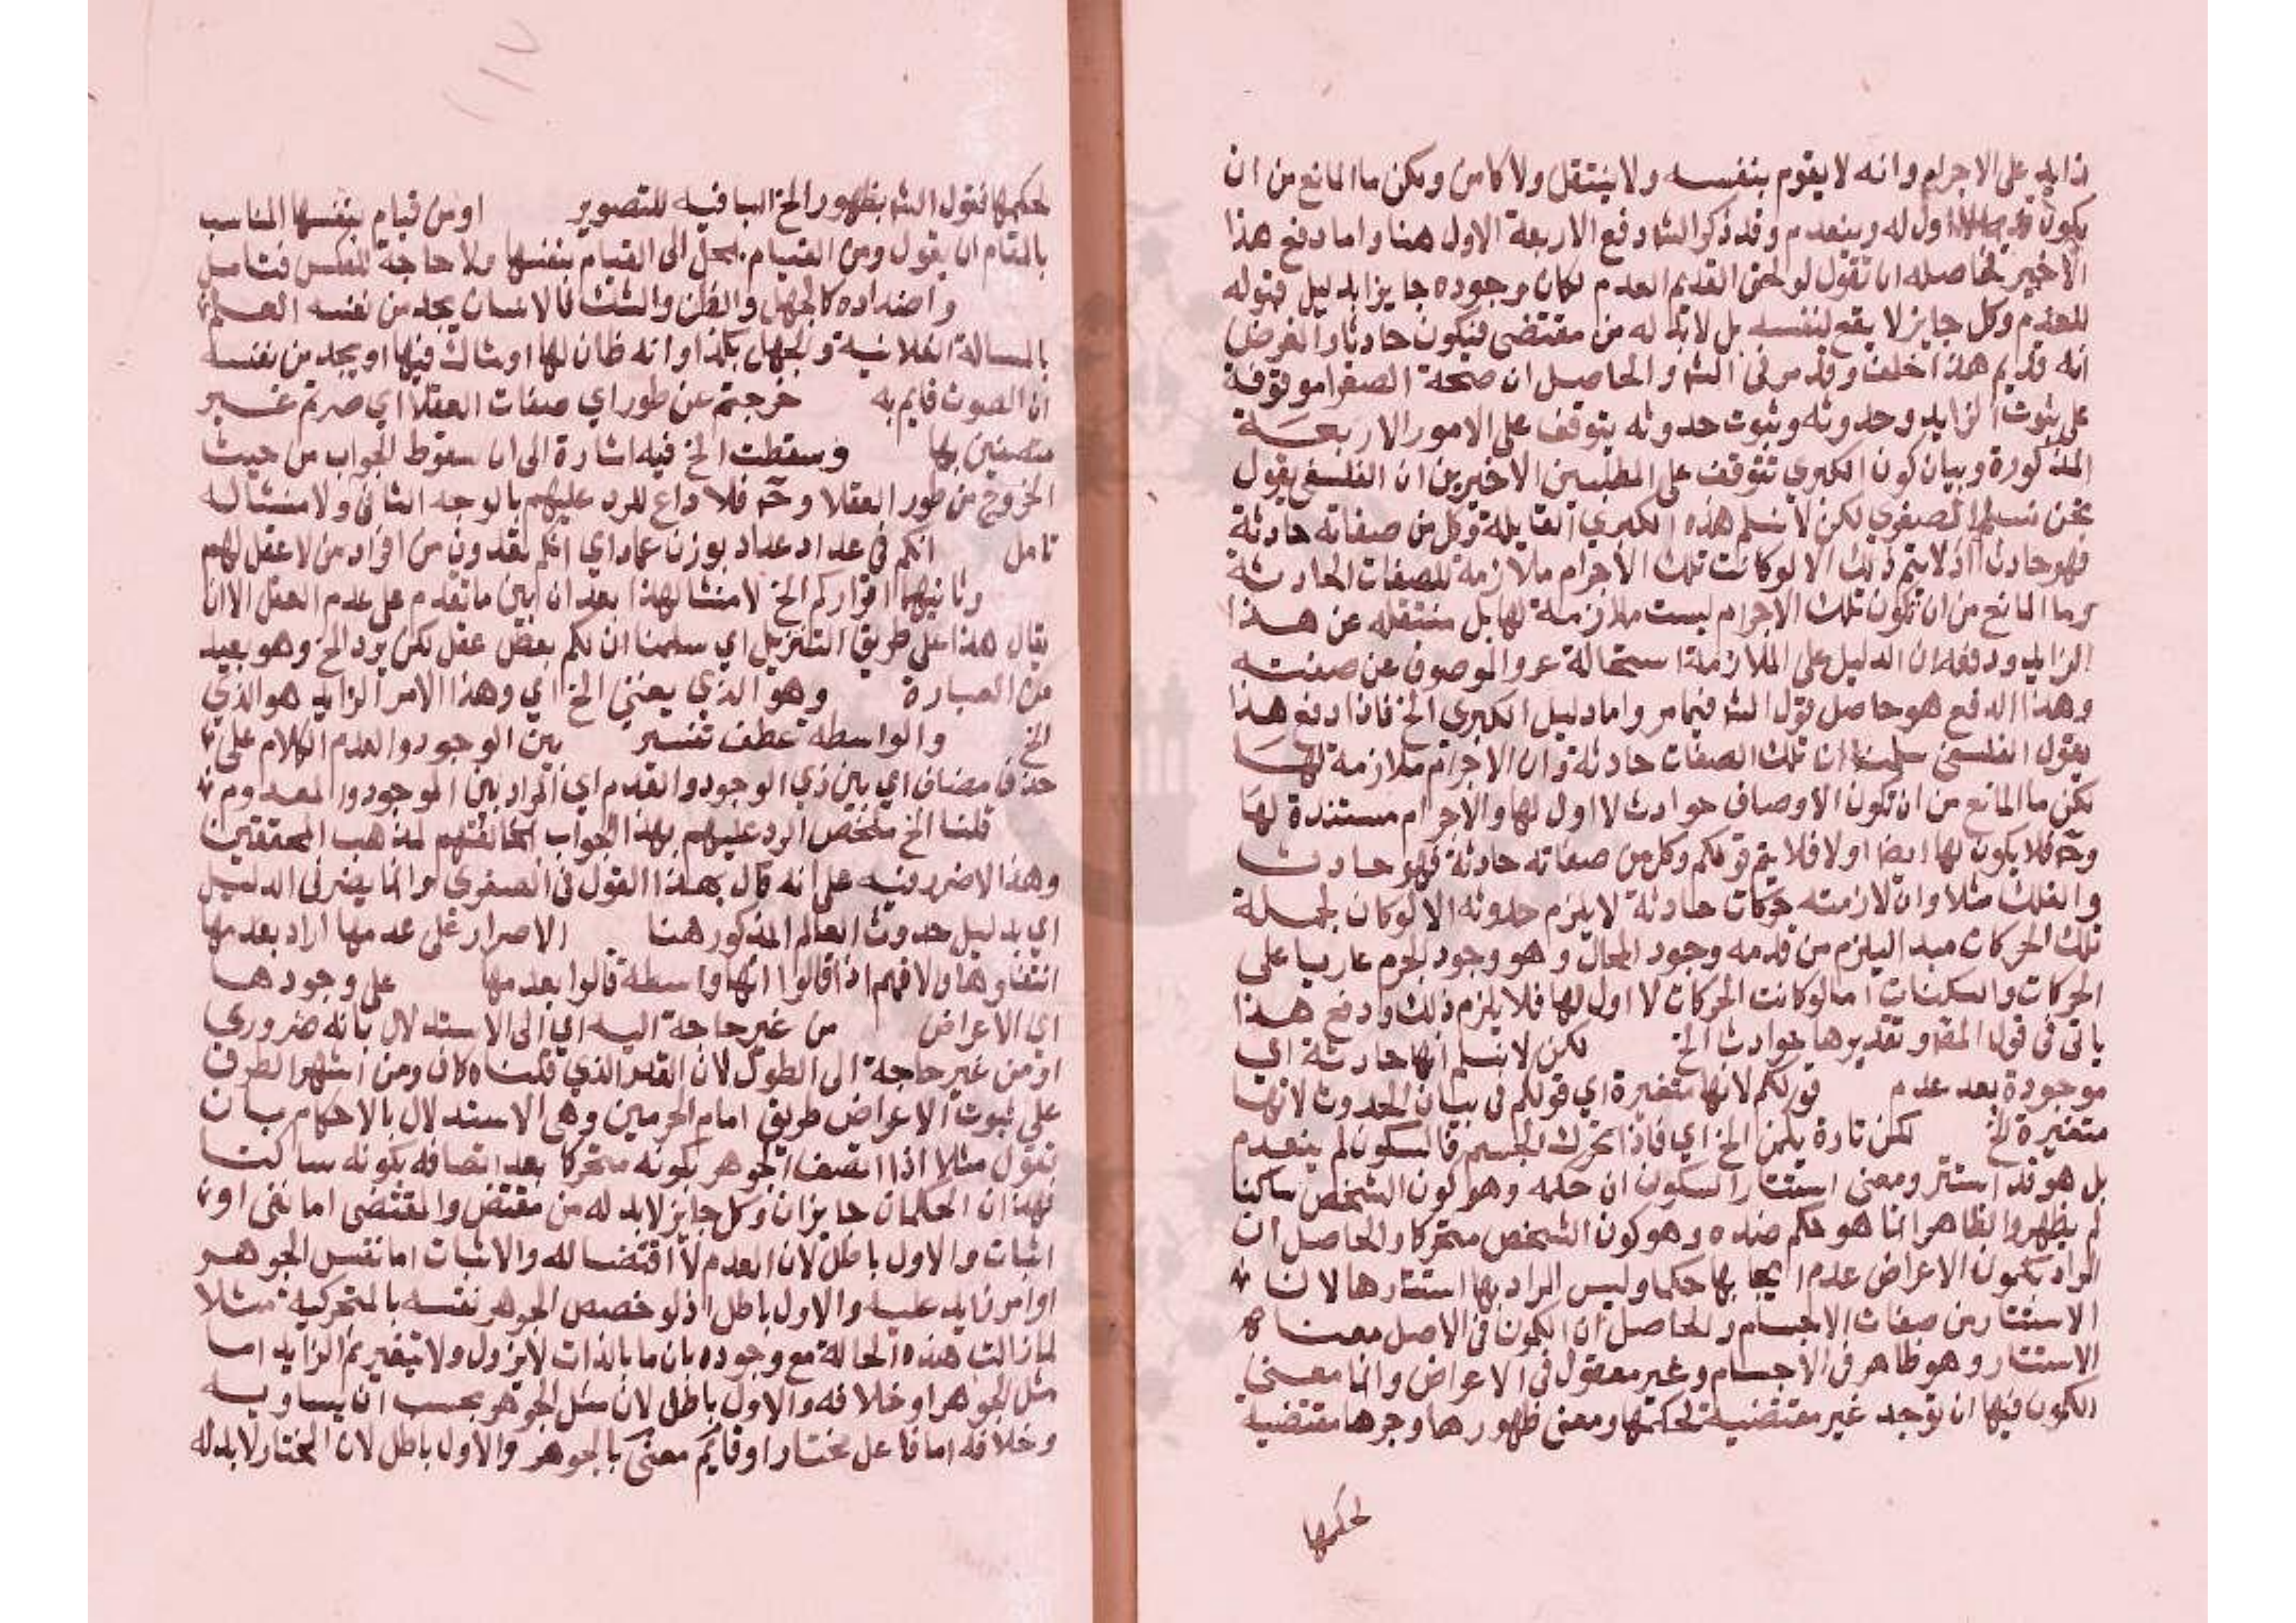 زايد على الاجرام وانه لا يقوم بنفسه ولا ينتقل ولا كامن ويكن ما المانع من ان
يكون اول له وينعدم وقد ذكر الشه دفع الاربعة الاول هنا واما دفع هذا
الاخير فحاصله ان تقول لو لحق القديم العدم لكان وجوده جايزا بدليل قبوله
للعدم وكل جايز لا يقع لنفسه بل لابد له من مقتضى فيكون حادثا والفرض
انه قديم هذا خلف وقد مر في الشه والحاصل ان صحة الصغرا موقوفة
على ثبوت الزايد وحدوثه وثبوت حدوثه يتوقف على الامور الاربعة
المذكورة وبيان كون الكبري تتوقف على المطلبين الاخيرين ان الفلسفي يقول
نحن نسلم الصغري لكن لا نسلم هذه الكبري القايلة وكل من صفاته حادثة
فهو حادث اذ لا يتم ذلك الا لو كانت تلك الاجرام ملازمة للصفات الحادثة
وما المانع من ان تكون تلك الاجرام ليست ملازمة لها بل منتقله عن هذا
الزايد ودفعه ان الدليل على الملازمة استحالة عرو الموصوف عن صفته
وهذا الدفع هو حاصل قول الشه فيما مر واما دليل الكبري الخ فاذا دفع هذا
يقول الفلسفي سلمنا ان تلك الصفات حادثة وان الاجرام ملازمة لها
لكن ما المانع من ان تكون الاوصاف حوادث لا اول لها والاجرام مستندة لها
وحـ فلا يكون لها ايضا اولا فلا يتم قولكم وكل من صفاته حادثة فهو حادث
والفلك مثلا وان لازمته حركات حادثة لا يلزم حدوثه الا لو كان لجملة
تلك الحركات مبدا ليلزم من قدمه وجود المحال وهو وجود الجرم عاريا على
الحركات والسكنات اما لو كانت الحركات لا اول لها فلا يلزم ذلك ودفع هذا
ياتى فى قول المصـ وتقديرها حوادث الخ لكن لا نسلم انها حادثة اي
موجودة بعد عدم قولكم لانها متغيرة اي قولكم فى بيان الحدوث لانها
متغيرة الخ لكن تارة يكمن الخ اي فاذا تحرك الجسم فالسكون لم ينعدم
بل هو قد استتر ومعنى استتار السكون ان حكمه وهو كون الشخص ساكنا
لم يظهر والظاهر انما هو حكم ضده وهو كون الشخص متحركا والحاصل ان
المراد بكمون الاعراض عدم ايجابها حكما وليس المراد بها استتارها لان
الاستتار من صفات الاجسام والحاصل ان الكمون فى الاصل معناه
الاستتار وهو ظاهر فى الاجسام وغير معقول فى الاعراض وانما معنى
الكمون فيها ان توجد غير مقتضية لحكمها ومعنى ظهورها وجرها مقتضية
لحكمها
لحكمها فقول الشه بظهور الخ البا فيه للتصوير او من قيام بنفسها المناسب
بالمقام ان يقول ومن القيام بمحل الى القيام بنفسها ولا حاجة للعكس فتامل
واضداده كالجهل والظن والشك فالانسان يجد من نفسه العلم
بالمسالة الفلانية والجهل بكذا وانه ظان لها او شاك فيها او يجد من نفسه
ان الصوت قايم به خرجتم عن طور اي صفات العقلا اي صرتم غير
متصفين بها وسقطت الخ فيه اشارة الى ان سقوط الجواب من حيث
الخروج من طور العقلا وحـ فلا داع للرد عليهم بالوجه الثانى ولا منشا له
تامل انكم فى عداد عداد بوزن عماد اي انكم تعدون من افراد من لا عقل لهم
وثانيهما اقراركم الخ لا منشا لهذا بعد ان بين ما تقدم على عدم العقل الا ان
يقال هذا على طريق التنزيل اي سلمنا ان لكم بعض عقل لكن يرد الخ وهو بعيد
من العبارة وهو الذي يعنى الخ اي وهذا الامر الزايد هو الذي
الخ والواسطه عطف تفسير بين الوجود والعدم الكلام على
حذف مضاف اي بين ذي الوجود والعدم اي المراد بين الموجود والمعدوم
قلنا الخ ملخص الرد عليهم بهذا الجواب مخالفتهم لمذهب المحققين
وهذا لا ضرر فيه على انه قال بهذا القول فى الصغري وانما يضر فى الدليل
اي بدليل حدوث العالم المذكور هنا الاصرار على عدمها اراد بعدمها
انتفاوها ولا فهم اذا قالوا انها واسطة قالوا بعدمها على وجودها
اي الاعراض من غير حاجة اليه اي الى الاستدلال بانه ضروري
او من غير حاجة الى الطول لان القدر الذي قلناه كان ومن اشهر الطرق
على ثبوت الاعراض طريق امام الحرمين وهى الاستدلال بالاحكام بان
تقول مثلا اذا اتصف الجوهر بكونه متحركا بعد اتصافه بكونه ساكنا
فهذان الحكمان جايزان وكل جايز لابد له من مقتض والمقتضى اما نفى او
اثبات والاول باطل لان العدم لا اقتضا له والاثبات اما نفس الجوهر
او امر زايد عليه والاول باطل اذ لو خصص الجوهر نفسه بالمتحركية مثلا
لما زالت هذه الحالة مع وجوده بان ما بالذات لا يزول ولا يتغير ثم الزايد اما
مثل الجوهر او خلافه والاول باطل لان مثل الجوهر بحسب ان يساويه
وخلافه اما فاعل مختار او قايم معنى بالجوهر والاول باطل لان المختار لابد له